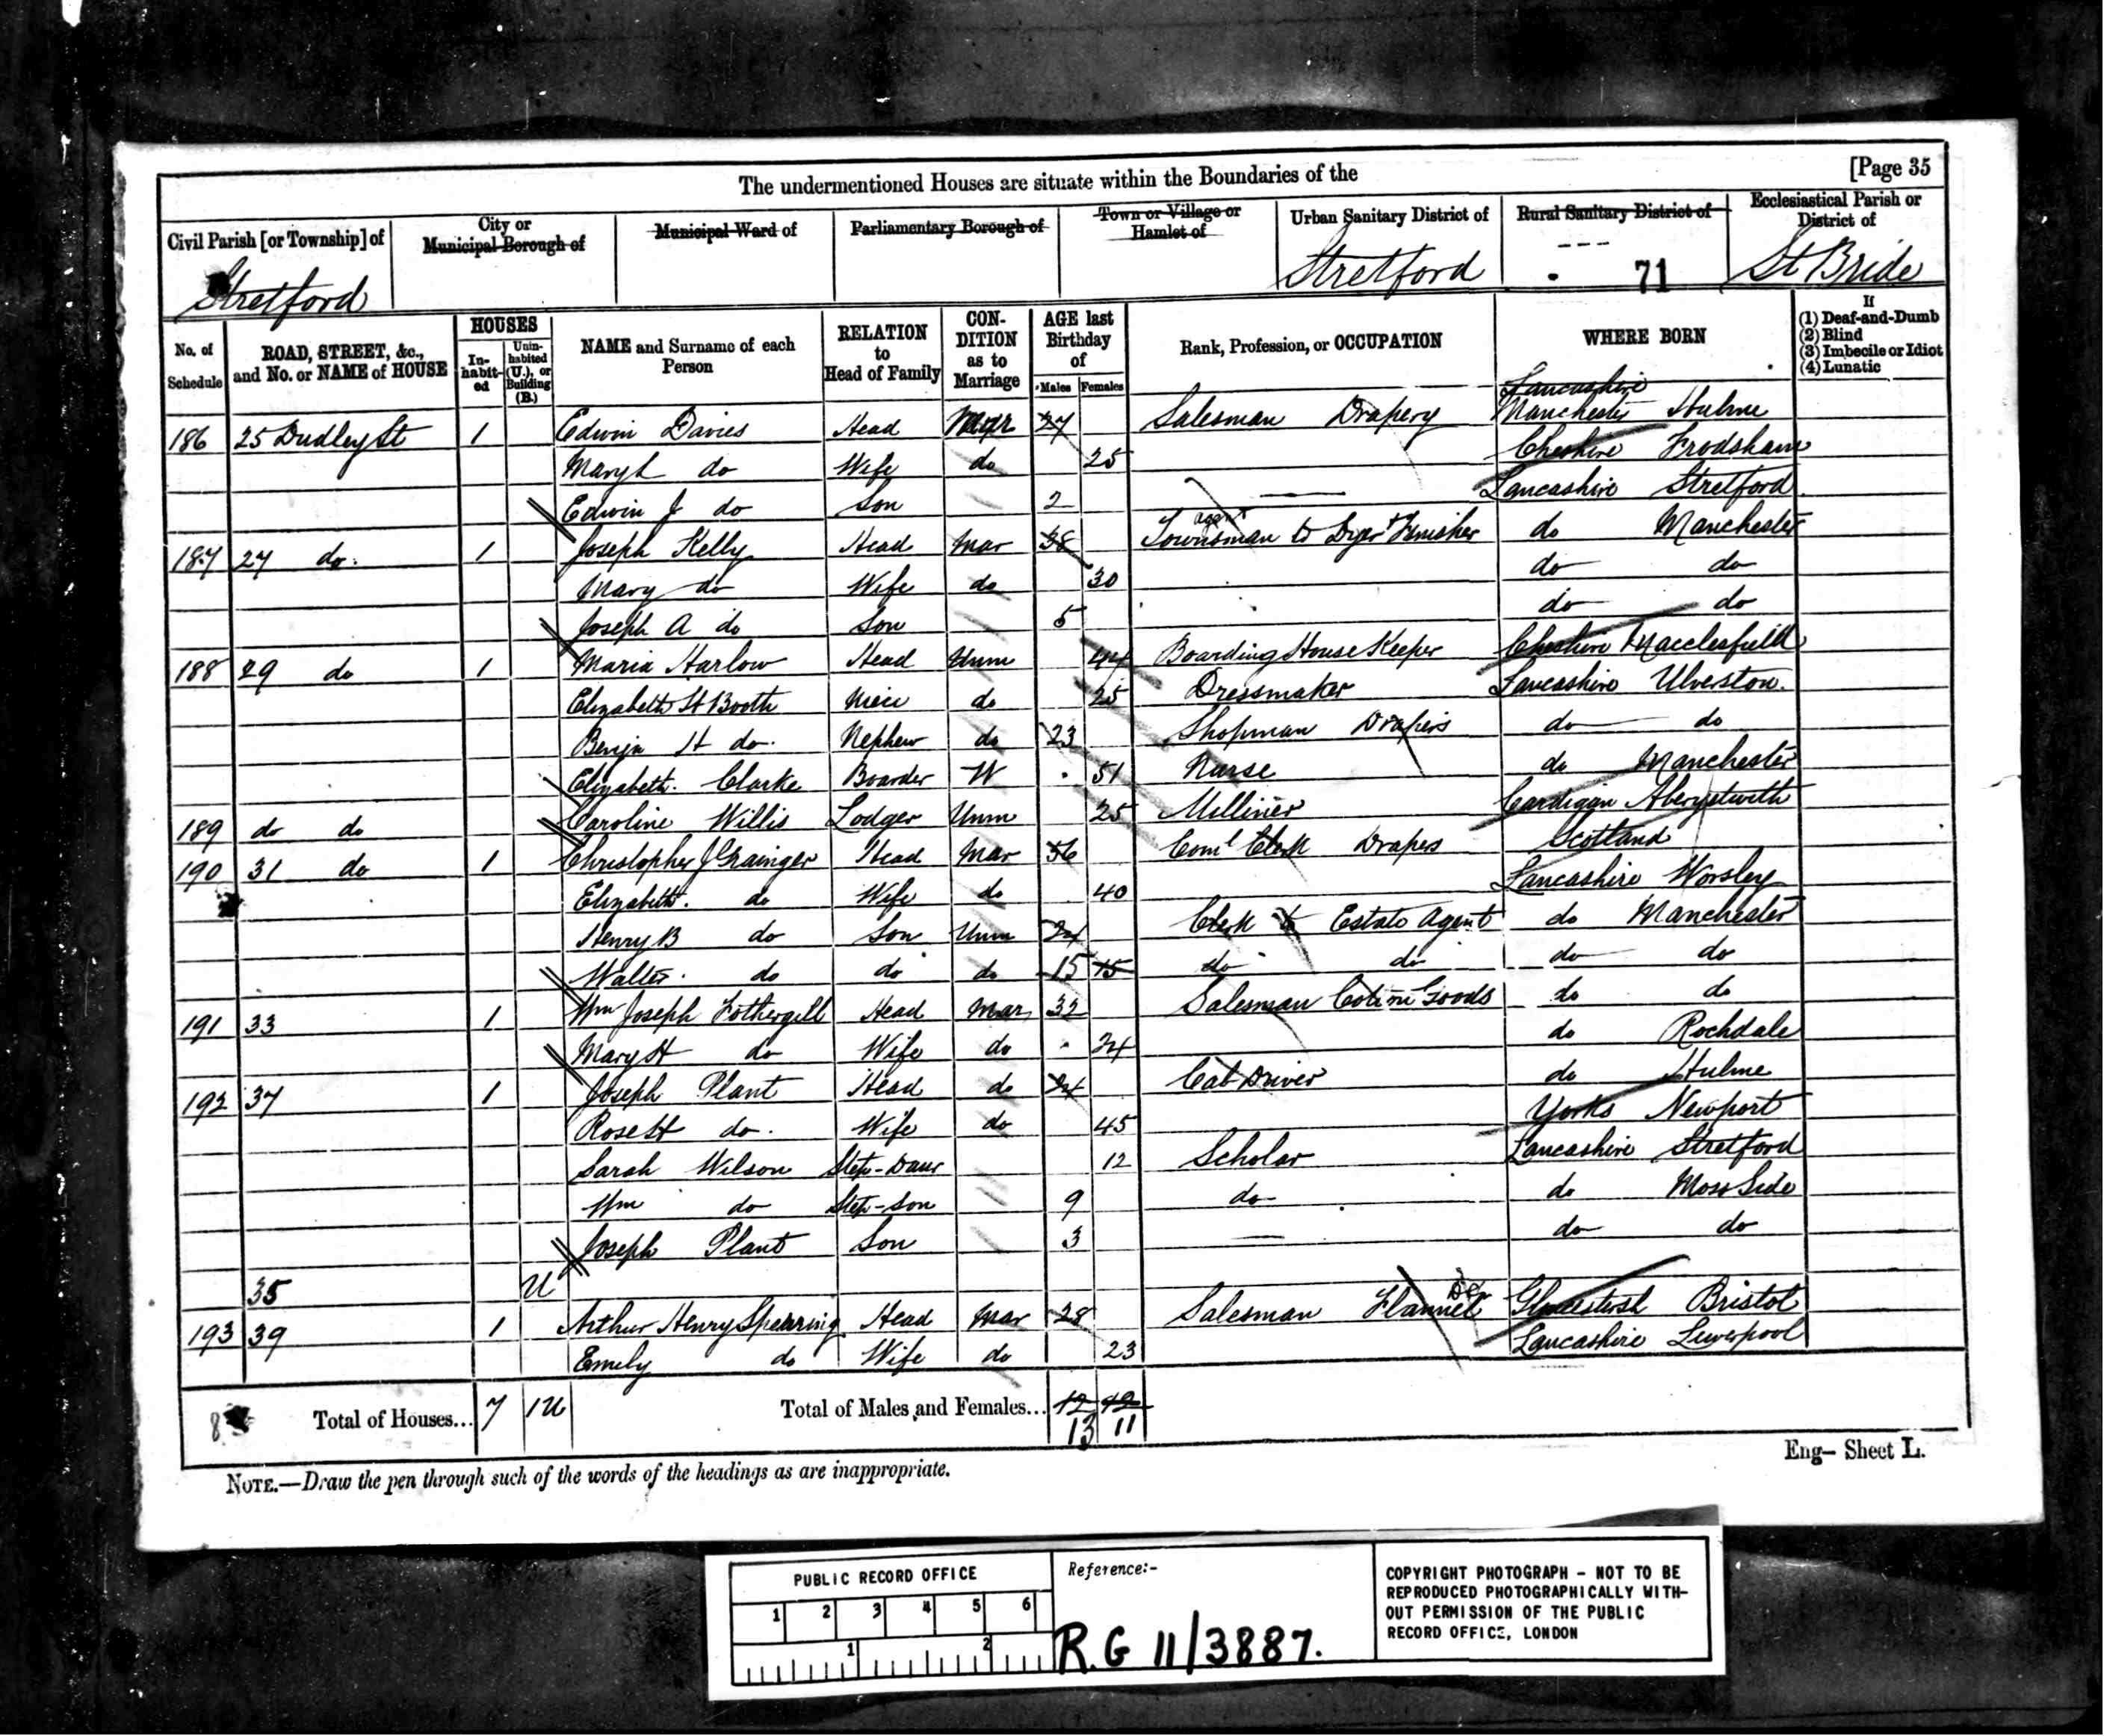 [Page 35
The undermentioned Houses are situate within the Boundaries of the
Civil Parish [or Township] of City or Municipal Borough of Municipal Ward of Parliamentary Borough of Town or Village or Hamlet of Urban Sanitary District of Rural Sanitary District of Ecclesiastical Parish or District of
Stretford Stretford 71 St Bride
No. of Schedule ROAD, STREET, &c., and No. or NAME of HOUSE HOUSES In-habit-ed Unin-habited (U.), or Building (B.) NAME and Surname of each Person RELATION to Head of Family CON-DITION as to Marriage AGE last Birthday of Males Females Rank, Profession, or OCCUPATION WHERE BORN If (1) Deaf-and-Dumb (2) Blind (3) Imbecile or Idiot (4) Lunatic
186 25 Dudley St 1 Edwin Davies Head Mar 27 Salesman Drapery Lancashire Manchester Hulme
Mary do Wife do 25 Cheshire Frodsham
Edwin J do Son 2 Lancashire Stretford
187 27 do 1 Joseph Kelly Head Mar 38 Townsman agent to Dyer + Finisher do Manchester
Mary do Wife do 30 do do
Joseph A do Son 5 do do
188 29 do 1 Maria Harlow Head Unm 44 Boarding House Keeper Cheshire Macclesfield
Elizabeth H Booth Niece do 25 Dressmaker Lancashire Ulverston
Benja H do Nephew do 23 Shopman Drapers do do
Elizabeth Clarke Boarder W 51 Nurse do Manchester
189 do do Caroline Willis Lodger Unm 25 Milliner Cardigan Aberystwith
190 31 do 1 Christopher J Grainger Head Mar 56 Coml Clerk Drapers Scotland
Elizabeth do Wife do 40 Lancashire Worsley
Henry B do Son Unm 24 Clerk to Estate Agent do Manchester
Walter do do do 15 15 do do do do
191 33 1 Wm Joseph Fothergill Head Mar 32 Salesman Cotton Goods do do
Mary H do Wife do 24 do Rochdale
192 37 1 Joseph Plant Head do 24 Cab Driver do Hulme
Rose H do Wife do 45 Yorks Newport
Sarah Wilson Step-Daur 12 Scholar Lancashire Stretford
Wm do Step-son 9 do do Moss Side
Joseph Plant Son 3 do do
35 U
193 39 1 Arthur Henry Spearring Head Mar 28 Salesman Flannel Bristol
Emily do Wife do 23 Lancashire Liverpool
8 Total of Houses... 7 1U Total of Males and Females... 12 12
13 11
Eng- Sheet L.
NOTE.—Draw the pen through such of the words of the headings as are inappropriate.
PUBLIC RECORD OFFICE
1 2 3 4 5 6
1 2
Reference:-
R.G 11/3887.
COPYRIGHT PHOTOGRAPH - NOT TO BE
REPRODUCED PHOTOGRAPHICALLY WITH-
OUT PERMISSION OF THE PUBLIC
RECORD OFFICE, LONDON